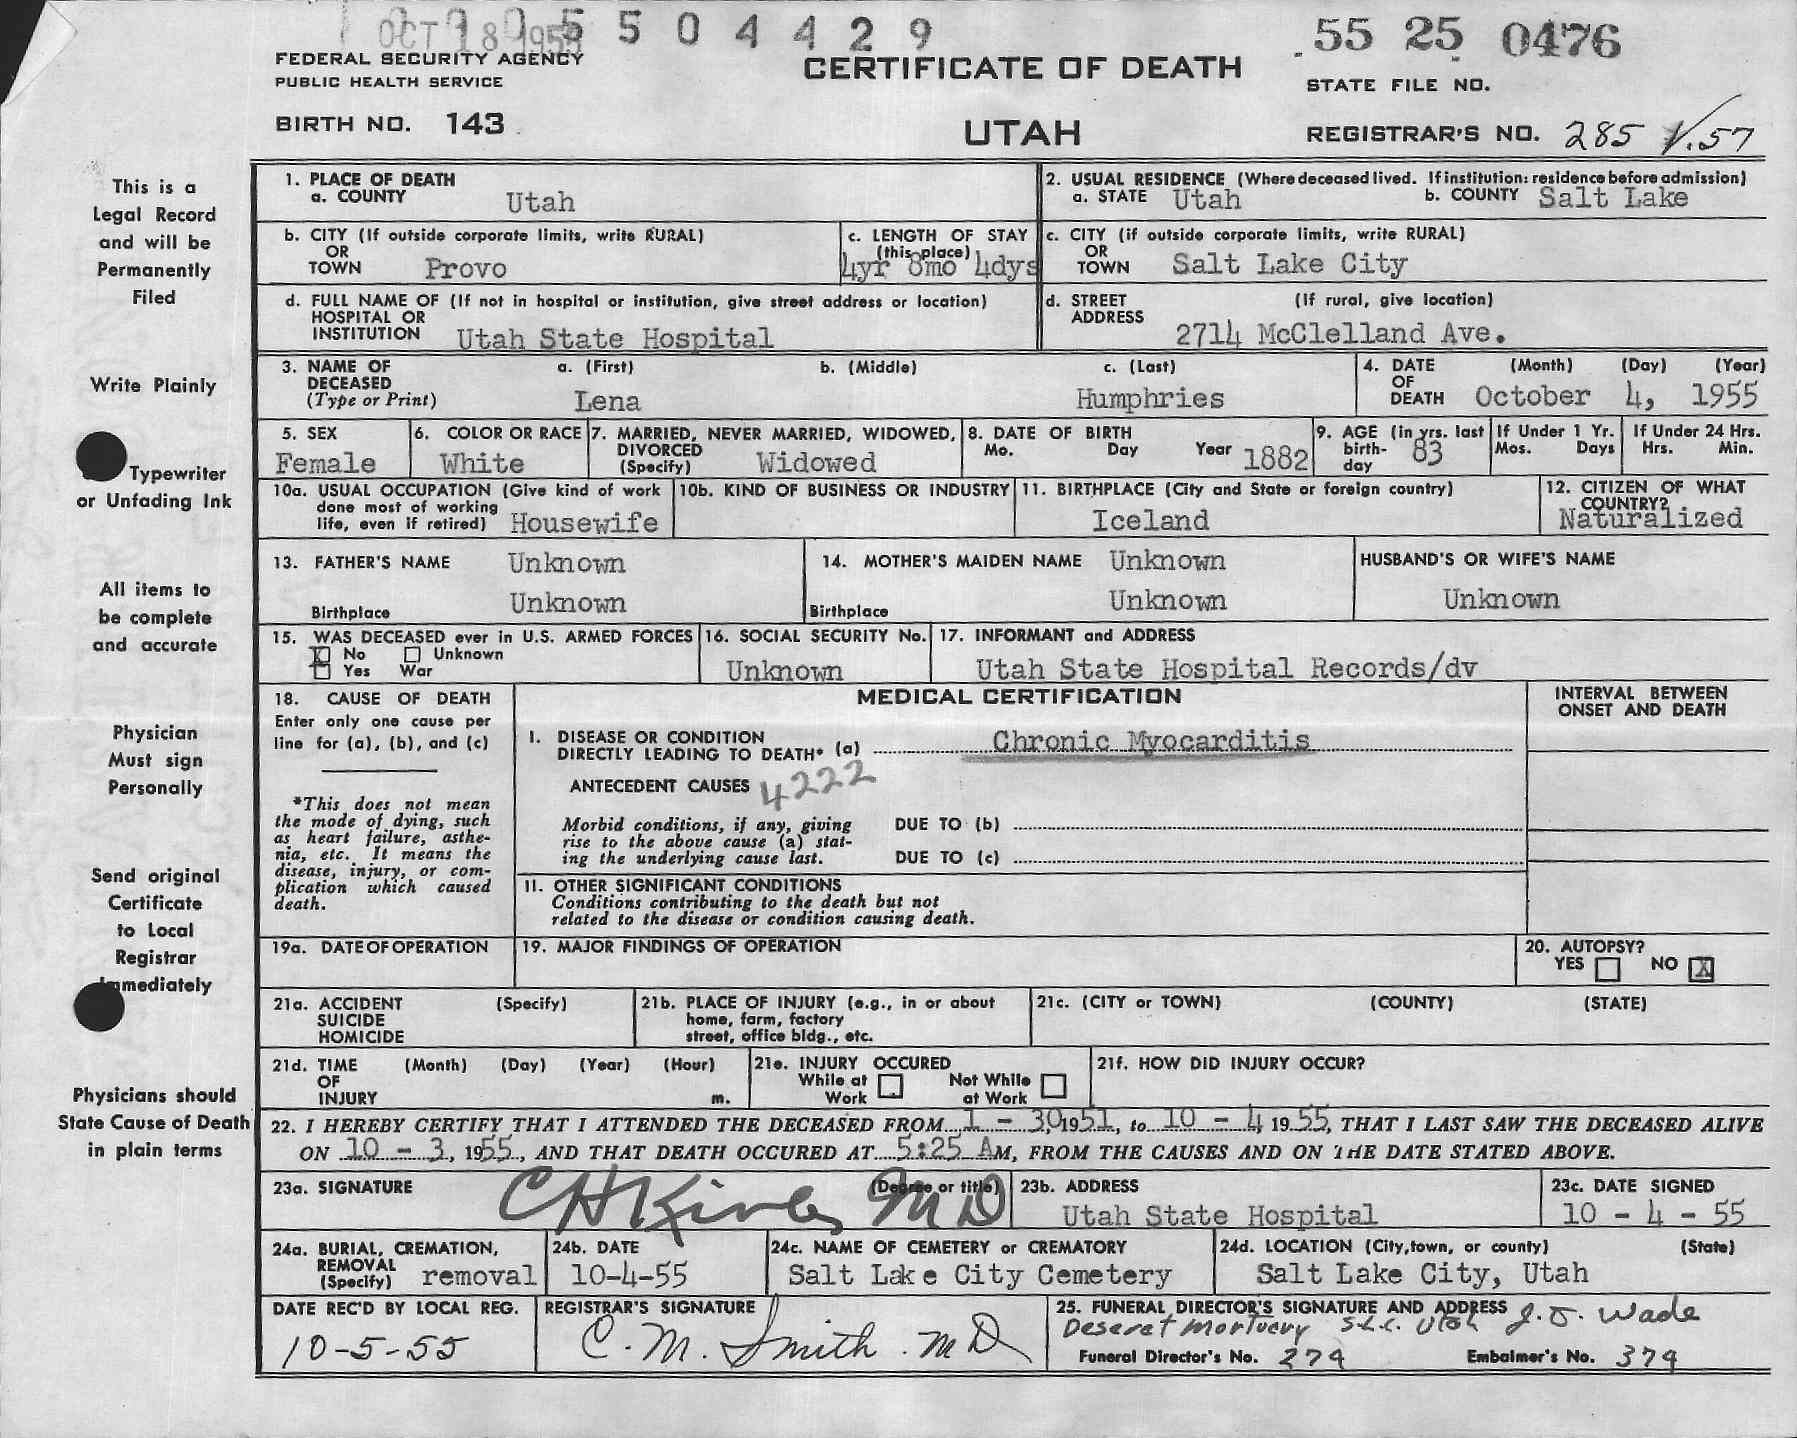 OCT 18 1955 5 0 4 4 2 9
55 25 0476
FEDERAL SECURITY AGENCY
PUBLIC HEALTH SERVICE
CERTIFICATE OF DEATH
STATE FILE NO.
BIRTH NO. 143
UTAH
REGISTRAR'S NO. 285 V.57
This is a
Legal Record
and will be
Permanently
Filed
Write Plainly
Typewriter
or Unfading Ink
All items to
be complete
and accurate
Physician
Must sign
Personally
Send original
Certificate
to Local
Registrar
Immediately
Physicians should
State Cause of Death
in plain terms
1. PLACE OF DEATH
a. COUNTY Utah
2. USUAL RESIDENCE (Where deceased lived. If institution: residence before admission)
a. STATE Utah b. COUNTY Salt Lake
b. CITY (If outside corporate limits, write RURAL)
OR
TOWN Provo
c. LENGTH OF STAY
(this place)
4yr 8mo 4dys
c. CITY (if outside corporate limits, write RURAL)
OR
TOWN Salt Lake City
d. FULL NAME OF (If not in hospital or institution, give street address or location)
HOSPITAL OR
INSTITUTION Utah State Hospital
d. STREET (If rural, give location)
ADDRESS
2714 McClelland Ave.
3. NAME OF a. (First) b. (Middle) c. (Last)
DECEASED
(Type or Print) Lena Humphries
4. DATE (Month) (Day) (Year)
OF
DEATH October 4, 1955
5. SEX
Female
6. COLOR OR RACE
White
7. MARRIED, NEVER MARRIED, WIDOWED,
DIVORCED
(Specify) Widowed
8. DATE OF BIRTH
Mo. Day Year 1882
9. AGE (in yrs. last
birth-
day 83
If Under 1 Yr.
Mos. Days
If Under 24 Hrs.
Hrs. Min.
10a. USUAL OCCUPATION (Give kind of work
done most of working
life, even if retired) Housewife
10b. KIND OF BUSINESS OR INDUSTRY
11. BIRTHPLACE (City and State or foreign country)
Iceland
12. CITIZEN OF WHAT
COUNTRY?
Naturalized
13. FATHER'S NAME Unknown
Birthplace Unknown
14. MOTHER'S MAIDEN NAME Unknown
Birthplace Unknown
HUSBAND'S OR WIFE'S NAME
Unknown
15. WAS DECEASED ever in U.S. ARMED FORCES
X No Unknown
Yes War
16. SOCIAL SECURITY No.
Unknown
17. INFORMANT and ADDRESS
Utah State Hospital Records/dv
18. CAUSE OF DEATH
Enter only one cause per
line for (a), (b), and (c)
*This does not mean
the mode of dying, such
as heart failure, asthe-
nia, etc. It means the
disease, injury, or com-
plication which caused
death.
MEDICAL CERTIFICATION
INTERVAL BETWEEN
ONSET AND DEATH
I. DISEASE OR CONDITION
DIRECTLY LEADING TO DEATH* (a) Chronic Myocarditis
ANTECEDENT CAUSES 4222
Morbid conditions, if any, giving
rise to the above cause (a) stat-
ing the underlying cause last.
DUE TO (b)
DUE TO (c)
II. OTHER SIGNIFICANT CONDITIONS
Conditions contributing to the death but not
related to the disease or condition causing death.
19a. DATE OF OPERATION
19. MAJOR FINDINGS OF OPERATION
20. AUTOPSY?
YES NO X
21a. ACCIDENT (Specify)
SUICIDE
HOMICIDE
21b. PLACE OF INJURY (e.g., in or about
home, farm, factory
street, office bldg., etc.
21c. (CITY or TOWN) (COUNTY) (STATE)
21d. TIME (Month) (Day) (Year) (Hour)
OF
INJURY m.
21e. INJURY OCCURED
While at Work Not While at Work
21f. HOW DID INJURY OCCUR?
22. I HEREBY CERTIFY THAT I ATTENDED THE DECEASED FROM 1 - 30, 1951, to 10 - 4, 19 55, THAT I LAST SAW THE DECEASED ALIVE
ON 10 - 3, 1955, AND THAT DEATH OCCURED AT 5:25 AM, FROM THE CAUSES AND ON THE DATE STATED ABOVE.
23a. SIGNATURE (Degree or title) M D
23b. ADDRESS
Utah State Hospital
23c. DATE SIGNED
10 - 4 - 55
24a. BURIAL, CREMATION,
REMOVAL
(Specify) removal
24b. DATE
10-4-55
24c. NAME OF CEMETERY or CREMATORY
Salt Lake City Cemetery
24d. LOCATION (City, town, or county) (State)
Salt Lake City, Utah
DATE REC'D BY LOCAL REG.
10-5-55
REGISTRAR'S SIGNATURE
C. M. Smith. M D
25. FUNERAL DIRECTOR'S SIGNATURE AND ADDRESS J. O. Wade
Deseret Mortuary S.L.C. Utah
Funeral Director's No. 279 Embalmer's No. 379